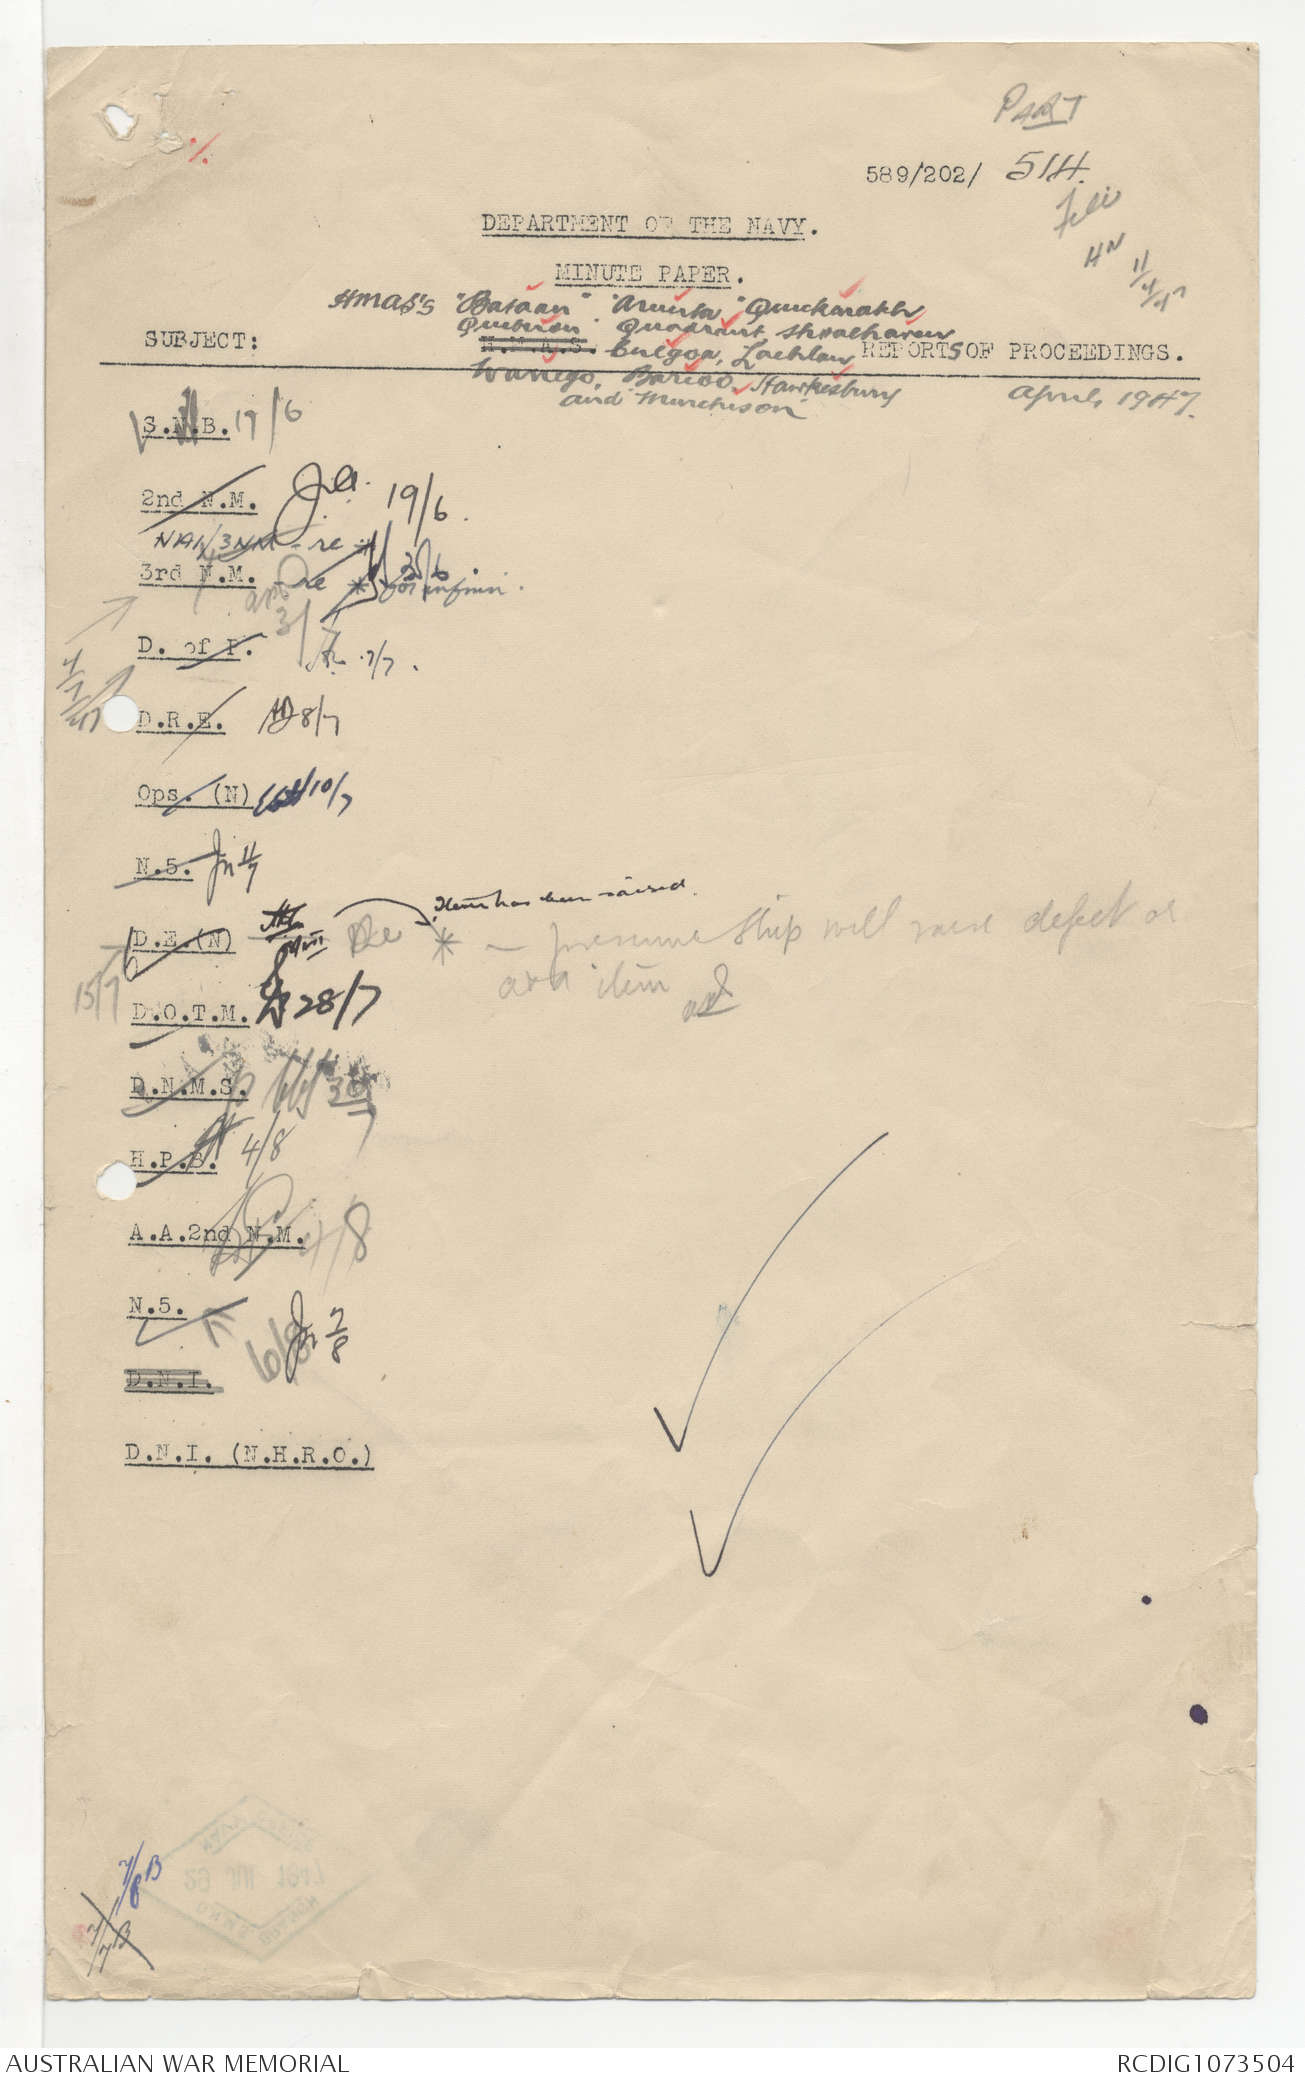 PART
589/202/ 514.
File
HN 11/4/47
DEPARTMENT OF THE NAVY.
MINUTE PAPER.
HMAS's "Bataan" "Arunta" "Quickmatch"
Quiberon Quadrant Shoalhaven
SUBJECT: H.M.A.S. Culgoa, Lachlan, REPORTS OF PROCEEDINGS.
Warrego, Barcoo, Hawkesbury
and "Murchison" April, 1947.
S.N.B. 17/6
2nd N.M. 19/6.
3NM - re *
3rd N.M. - re *
3/7
D. of P. 7/7.
4/7/47
D.R.E. 8/7
Ops. (N) 10/7
N.5. 11/7
Item has been raised.
D.E.(N) Re * - presume ship will raise defect or
a & a item
15/7
D.O.T.M. 28/7
D.N.M.S. 30/7
H.P.B. 4/8
A.A.2nd N.M. 4/8
N.5. 6/8 7/8
D.N.I.
D.N.I. (N.H.R.O.)
7/8 B
7/7 B
AUSTRALIAN WAR MEMORIAL RCDIG1073504